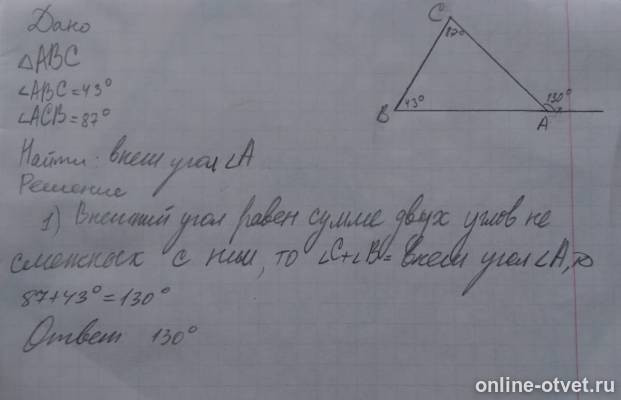 Дано
△ABC
∠ABC=43°
∠ACB=87°
Найти: внеш угол ∠A
Решение
1) Внешний угол равен сумме двух углов не
смежных с ним, то ∠C+∠B= внеш угол ∠A, то
87+43°=130°
Ответ 130°
C
87°
B
43°
130°
A
online-otvet.ru